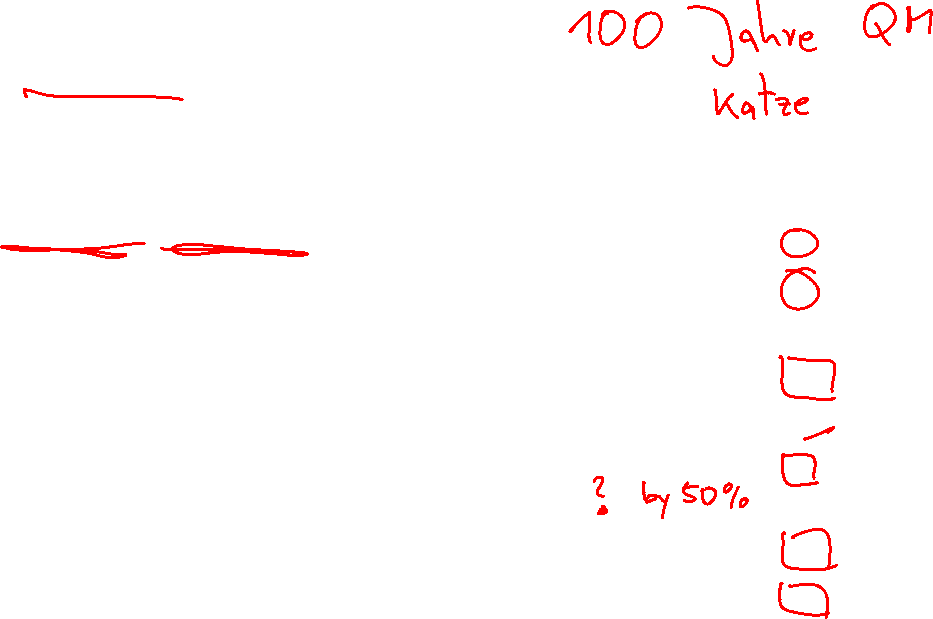 100 Jahre QM
Katze
? by 50%